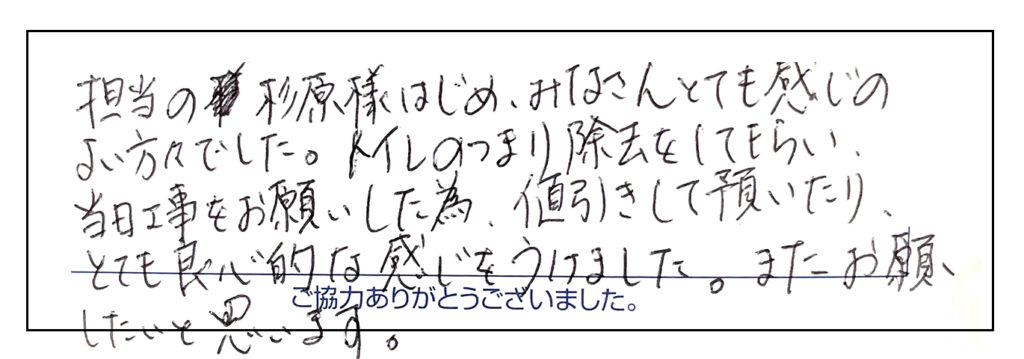 担当の杉原様はじめ、みなさんとても感じの
よい方々でした。トイレのつまり除去をしてもらい、
当日工事をお願いした為、値引きして預いたり、
とても良心的な感じをうけました。またお願い
ご協力ありがとうございました。
したいと思います。